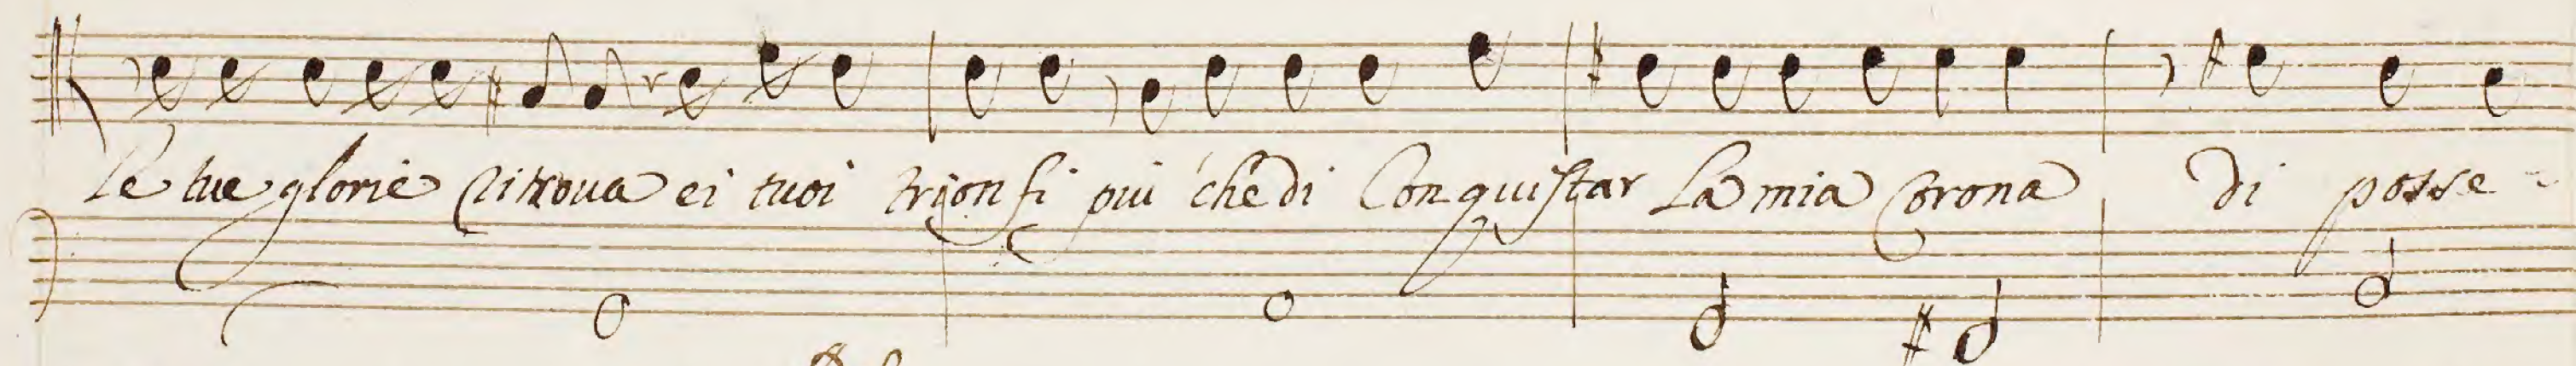 Le tue glorie ritroua ei tuoi trionfi piu che di Conquistar La mia Corona di posse-